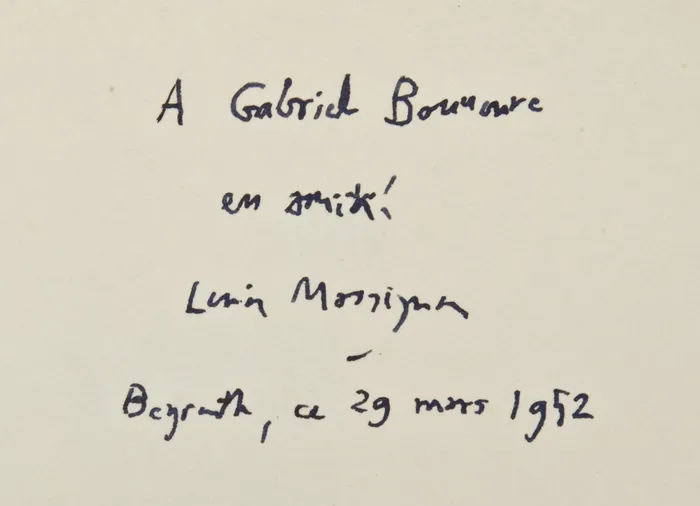 A Gabriel Bounoure
en amitié
Louis Massignon
Beyrouth, ce 29 mars 1952